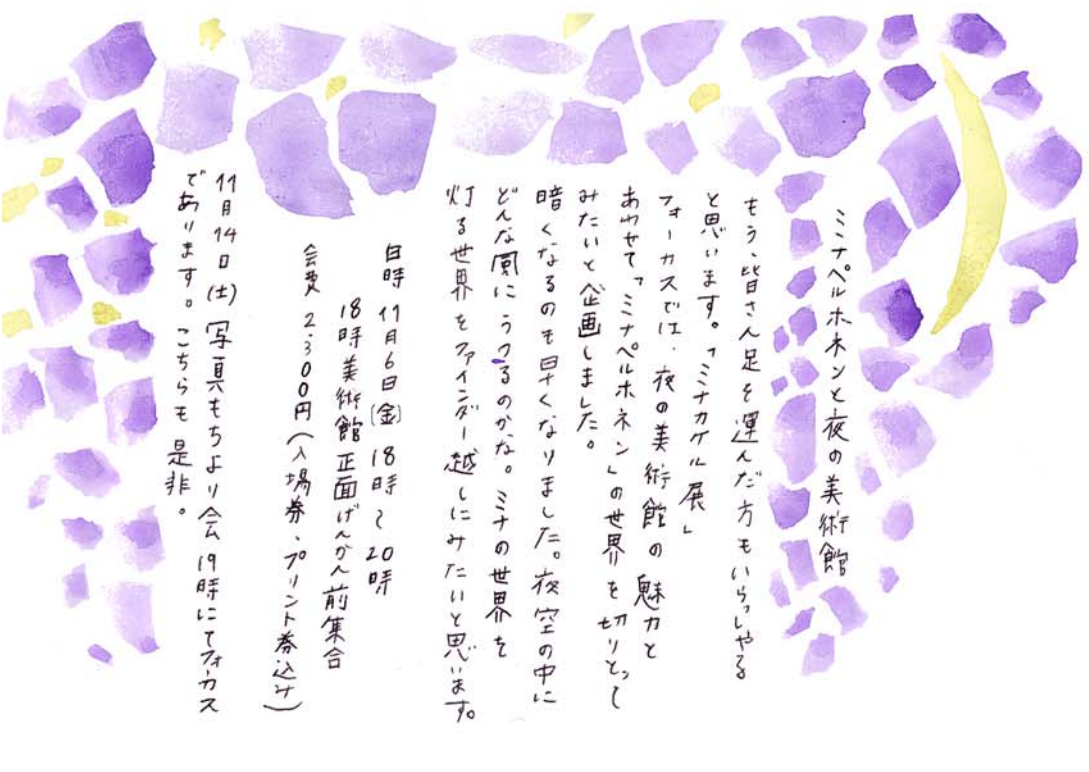 ミナペルホネンと夜の美術館
もう、皆さん足を運んだ方もいらっしやる
と思います。「ミナカケル展」
フォーカスでは、夜の美術館の魅力と
あわせて「ミナペルホネン」の世界を切りとって
みたいと企画しました。
暗くなるのも早くなりました。夜空の中に
どんな風にうつるのかな。ミナの世界を
灯る世界をファインダー越しにみたいと思います。
日時 11月6日(金) 18時〜20時
18時美術館正面げんかん前集合
会費 2.300円(入場券、プリント券込み)
11月14日(土) 写真もちより会 19時にてフォーカス
であります。こちらも是非。